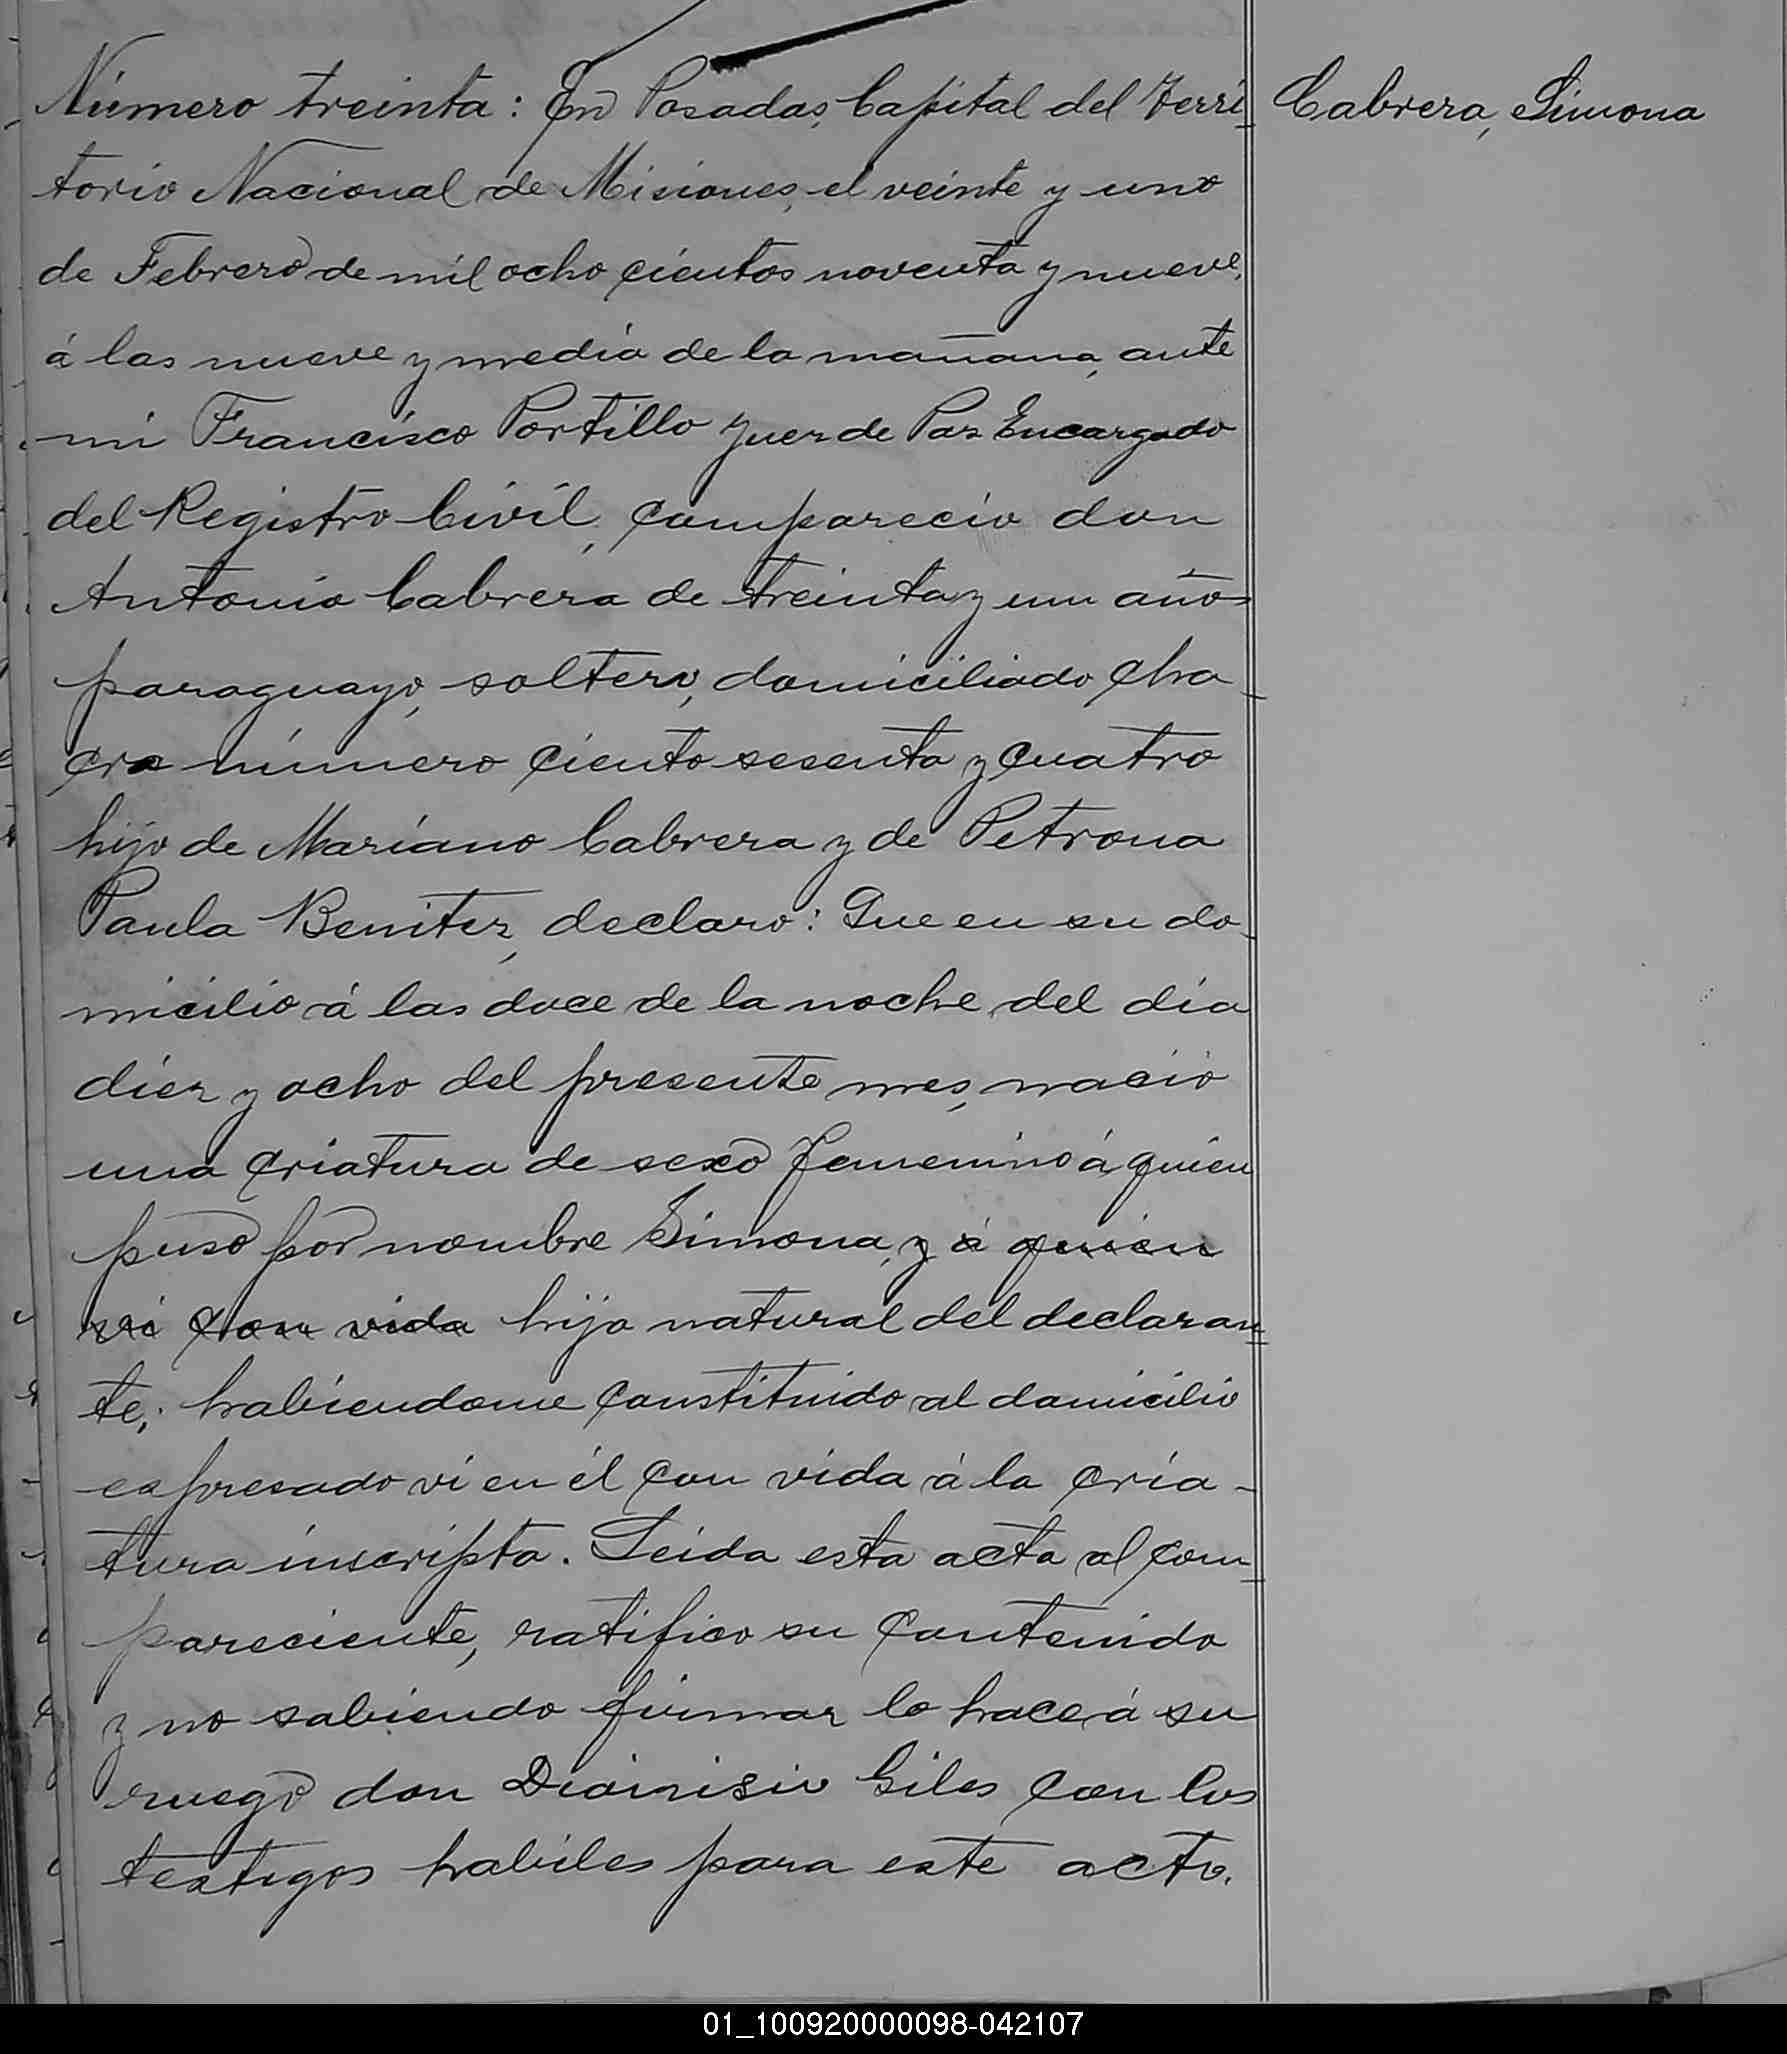 Número treinta: En Posadas, Capital del Terri-
torio Nacional de Misiones, el veinte y uno
de Febrero de mil ocho cientos noventa y nueve,
á las nueve y media de la mañana, ante
mi Francisco Portillo Juez de Paz Encargado
del Registro Civil, comparecio don
Antonio Cabrera de treinta y un años
paraguayo, soltero, domiciliado, cha-
cra número ciento sesenta y cuatro
hijo de Mariano Cabrera y de Petrona
Paula Benitez, declaro: Que en su do-
micilio á las doce de la noche del día
diez y ocho del presente mes, nació
una criatura de sexo femenino á quien
puso por nombre Simona, y á quien
vi con vida hija natural del declaran-
te; habiendome constituido al domicilio
espresado vi en él con vida á la cria-
tura inscripta. Leida esta acta al com-
pareciente, ratifico su contenido
y no sabiendo firmar lo hace á su
ruego don Dionisio Giles con los
testigos habiles para este acto.
Cabrera, Simona
01_100920000098-042107